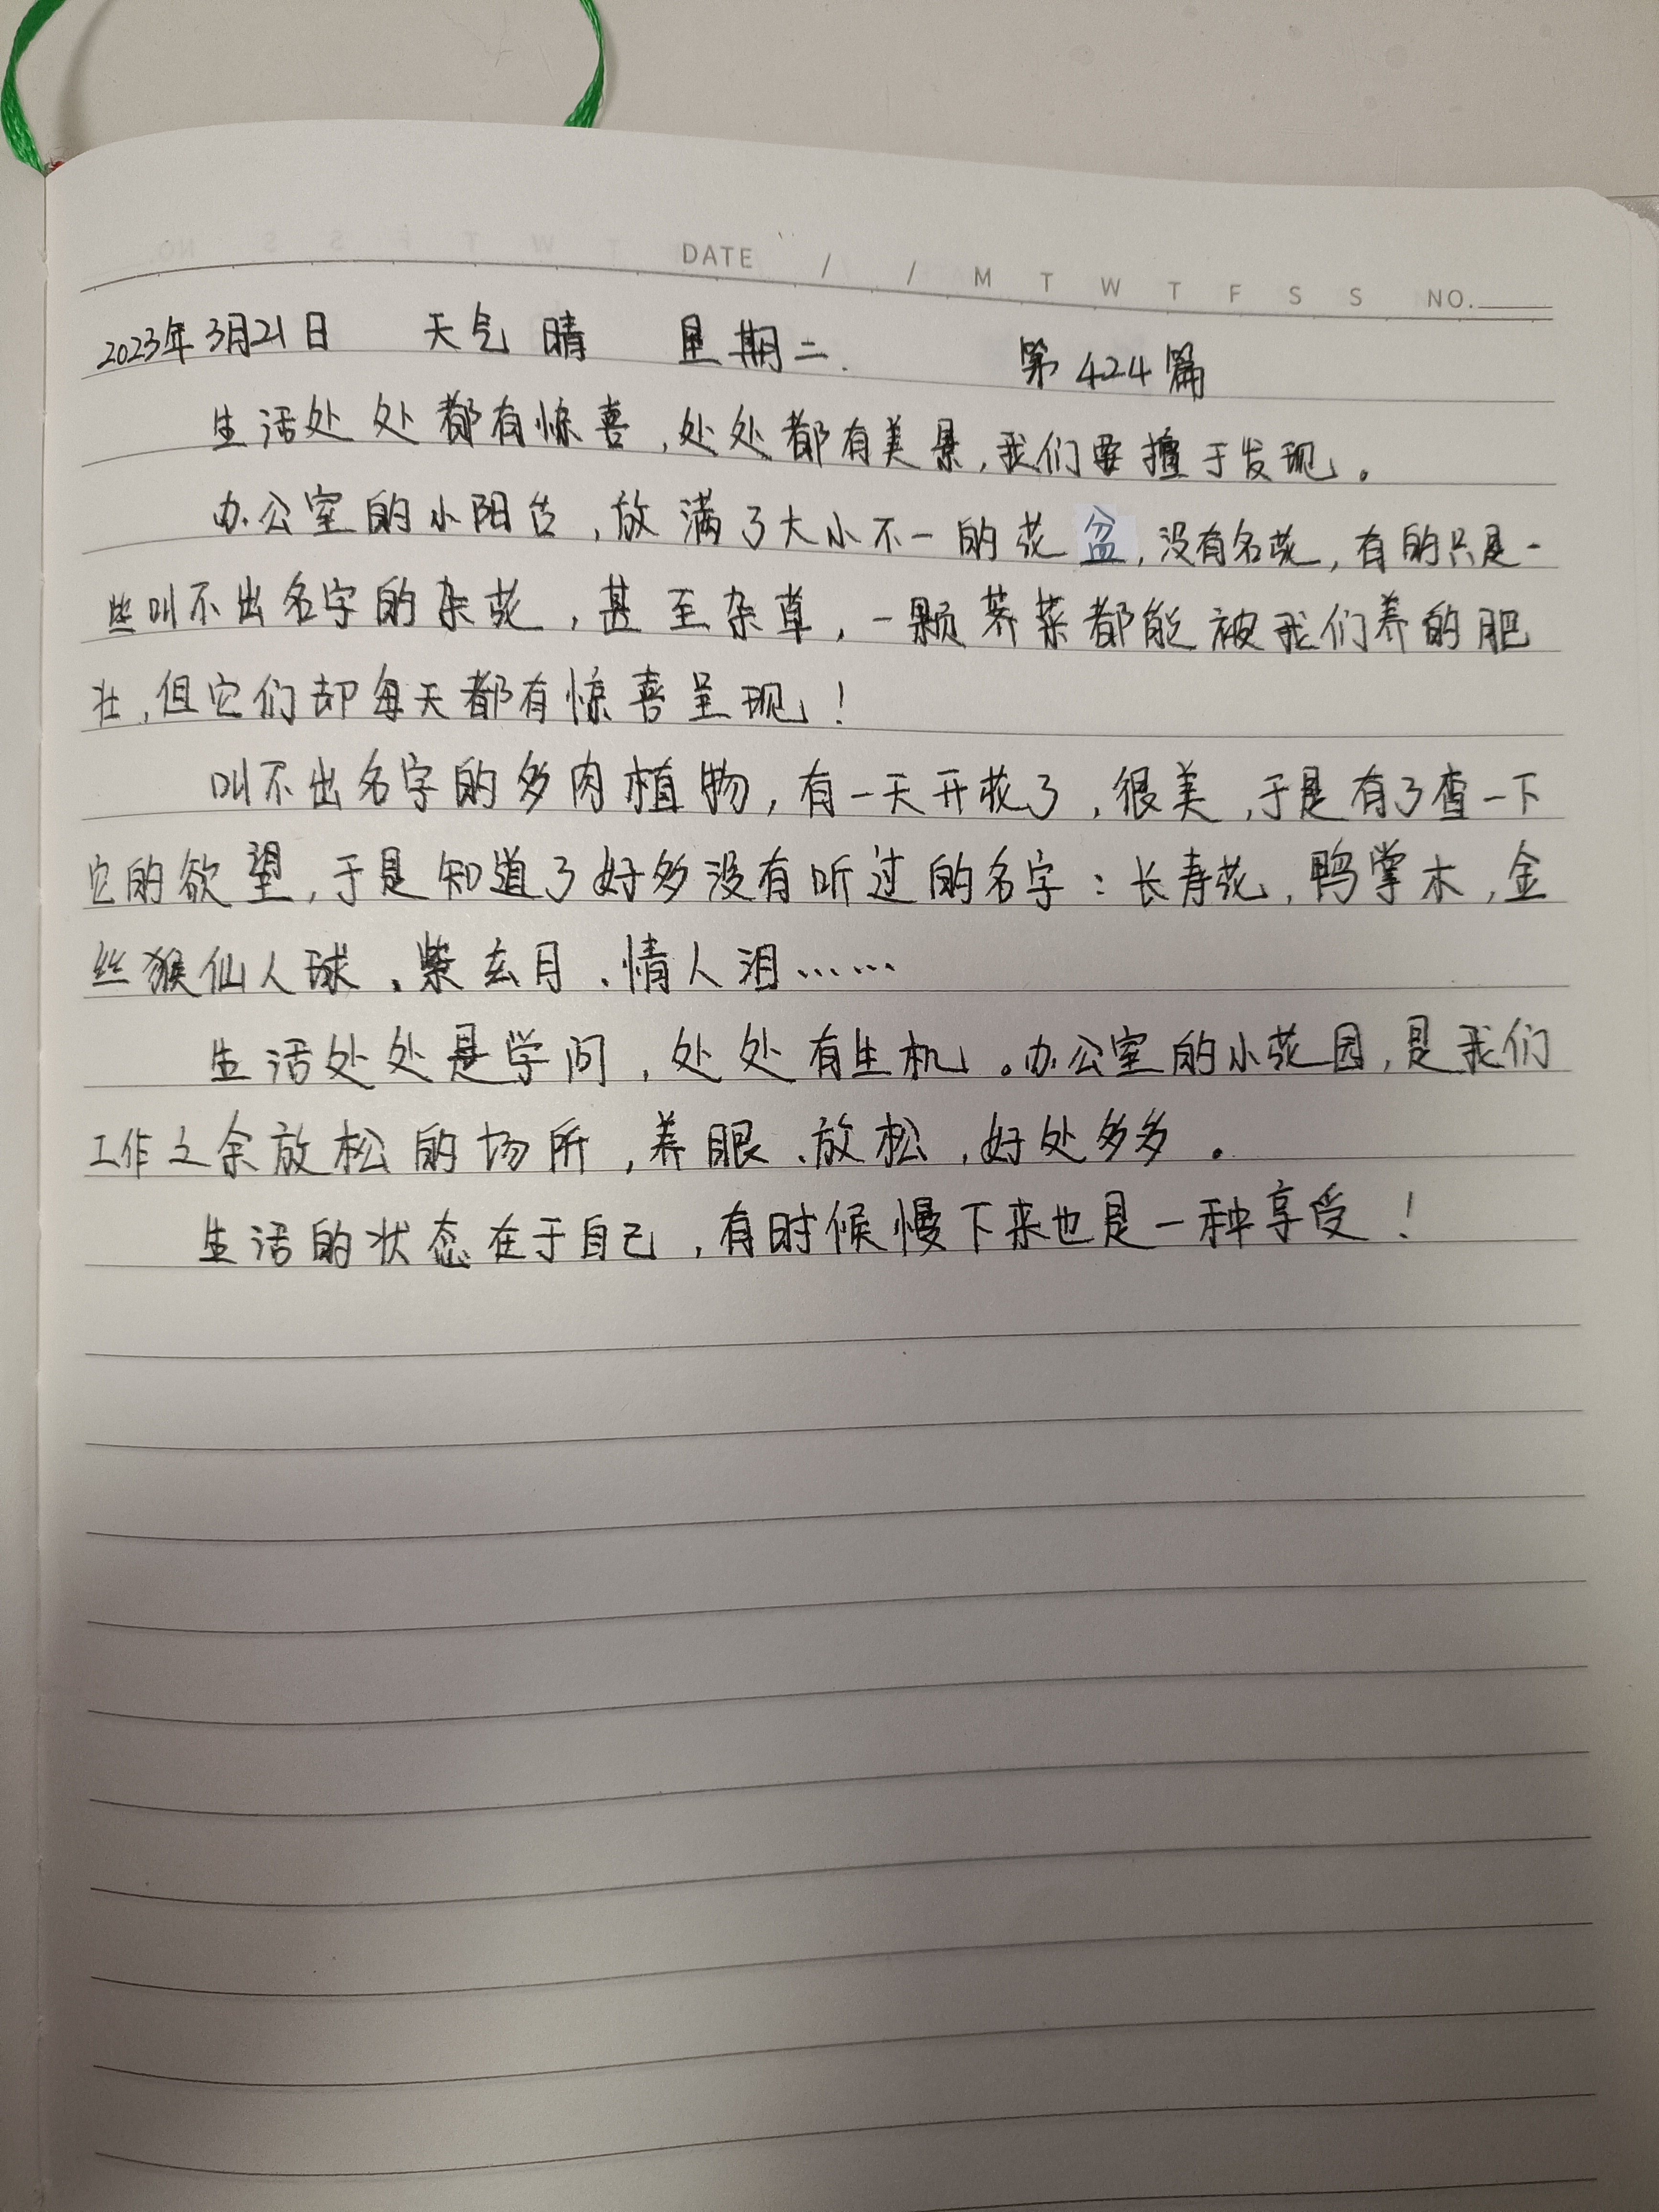 DATE / / M T W T F S S NO.
2023年3月21日 天气 晴 星期二. 第424篇
生活处处都有惊喜,处处都有美景,我们要擅于发现。
办公室的小阳台,放满了大小不一的花盆,没有名花,有的只是一
些叫不出名字的杂花,甚至杂草,一颗荠菜都能被我们养的肥
壮,但它们却每天都有惊喜呈现!
叫不出名字的多肉植物,有一天开花了,很美,于是有了查一下
它的欲望,于是知道了好多没有听过的名字:长寿花,鸭掌木,金
丝猴仙人球、紫玄月、情人泪……
生活处处是学问,处处有生机。办公室的小花园,是我们
工作之余放松的场所,养眼、放松,好处多多。
生活的状态在于自己,有时候慢下来也是一种享受!